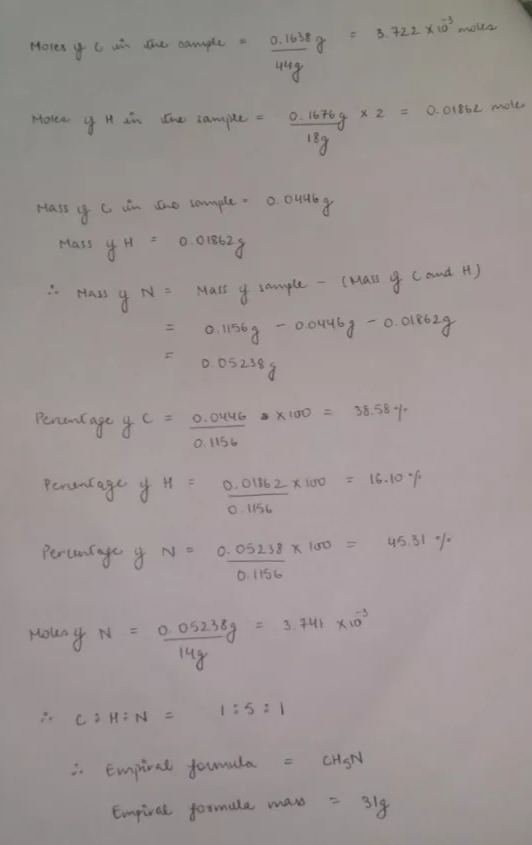 Moles y C in the sample = 0.1638g / 44g = 3.722 × 10⁻³ moles
Moles y H in the sample = 0.1676g / 18g × 2 = 0.01862 mole
Mass y C in the sample = 0.0446g
Mass y H = 0.01862g
∴ Mass y N = Mass y sample - (Mass y C and H)
= 0.1156g - 0.0446g - 0.01862g
= 0.05238g
Percentage y C = 0.0446 / 0.1156 × 100 = 38.58 %
Percentage y H = 0.01862 / 0.1156 × 100 = 16.10 %
Percentage y N = 0.05238 / 0.1156 × 100 = 45.31 %
Moles y N = 0.05238g / 14g = 3.741 × 10⁻³
∴ C : H : N = 1 : 5 : 1
∴ Empiral formula = CH₅N
Empiral formula mass = 31g